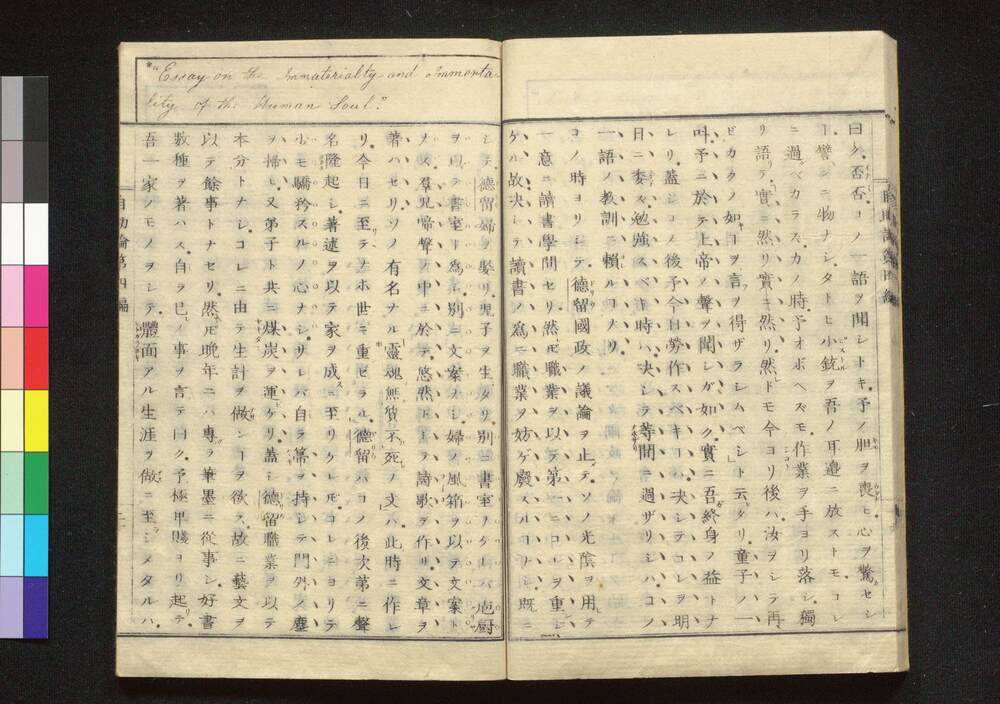 曰ク否否コノ一語ヲ聞シトキ予ノ胆ヲ喪ヒ心ヲ驚セシ
一譬ベンニ物ナシタトヒ小銃ヲ吾ノ耳邉ニ放ストモコレ
ニ過ベカラズカノ時予オボヘズ作業ヲ手ヨリ落シ獨
リ語リテ實ニ然リ實ニ然リ然ドモ今ヨリ後ハ汝ヲシテ再
ビカクノ如キヲ言フヲ得ザラシムベシト云ヘタリ童子ノ一
叫予ニ於テ上帝ノ聲ヲ聞シガ如ク實ニ吾終身ノ益トナ
レリ蓋シコノ後予今日勞作スベキコハ決シテコレヲ明
日ニ委ズ勉強スベキ時ハ決シテ等閒ニ過ザリシハコノ
一語ノ教訓ニ頼ルコナリ
コノ時ヨリシテ德留國政ノ議論ヲ止テソノ光陰ヲ用テ
一意ニ讀書學問セリ然モ職業ヲ以テ第一ニコレヲ重ンシ
ケル故決シテ讀書ノ爲ニ職業ヲ妨ゲ廢スルコナシ既ニ
"Essay on the Immateriality and Immorta-
lity of the Human Soul."
シテ德留婦ヲ娶リ児子ヲ生タリ別ニ書室ノタレバ庖厨
ヲ以テ書室ト爲シ別ニ文案ナシ婦ノ風箱ヲ以テ文案ト
ナス羣児啼聲ノ中ニ於テ悠然トシテ詩歌ヲ作リ文章ヲ
著ハセリソノ有名ナル靈魂無質不死ノ文ハ此時ニ作レ
リ今日ニ至テナホ世ニ重ゼラル德留ハコノ後次第ニ聲
名隆起シ著述ヲ以テ家ヲ成スニ至リケレモコレニヨリテ
少モ驕矜スルノ心ナシサレバ自ラ箒ヲ持シテ門外ノ塵
ヲ掃ヒ又弟子ト共ニ煤炭ヲ運ケリ蓋シ德留職業ヲ以テ
本分トナシコレニ由テ生計ヲ做ンーヲ欲ス故ニ藝文ヲ
以テ餘事トナセリ然モ晩年ニハ專ラ筆墨ニ從事シ好書
數種ヲ著ハス自ラ已ノ事ヲ言テ曰ク予極卑賤ヨリ起リテ
吾一家ノモノヲシテ體面アル生涯ヲ做ニ至シメタルハ
自助論第四編